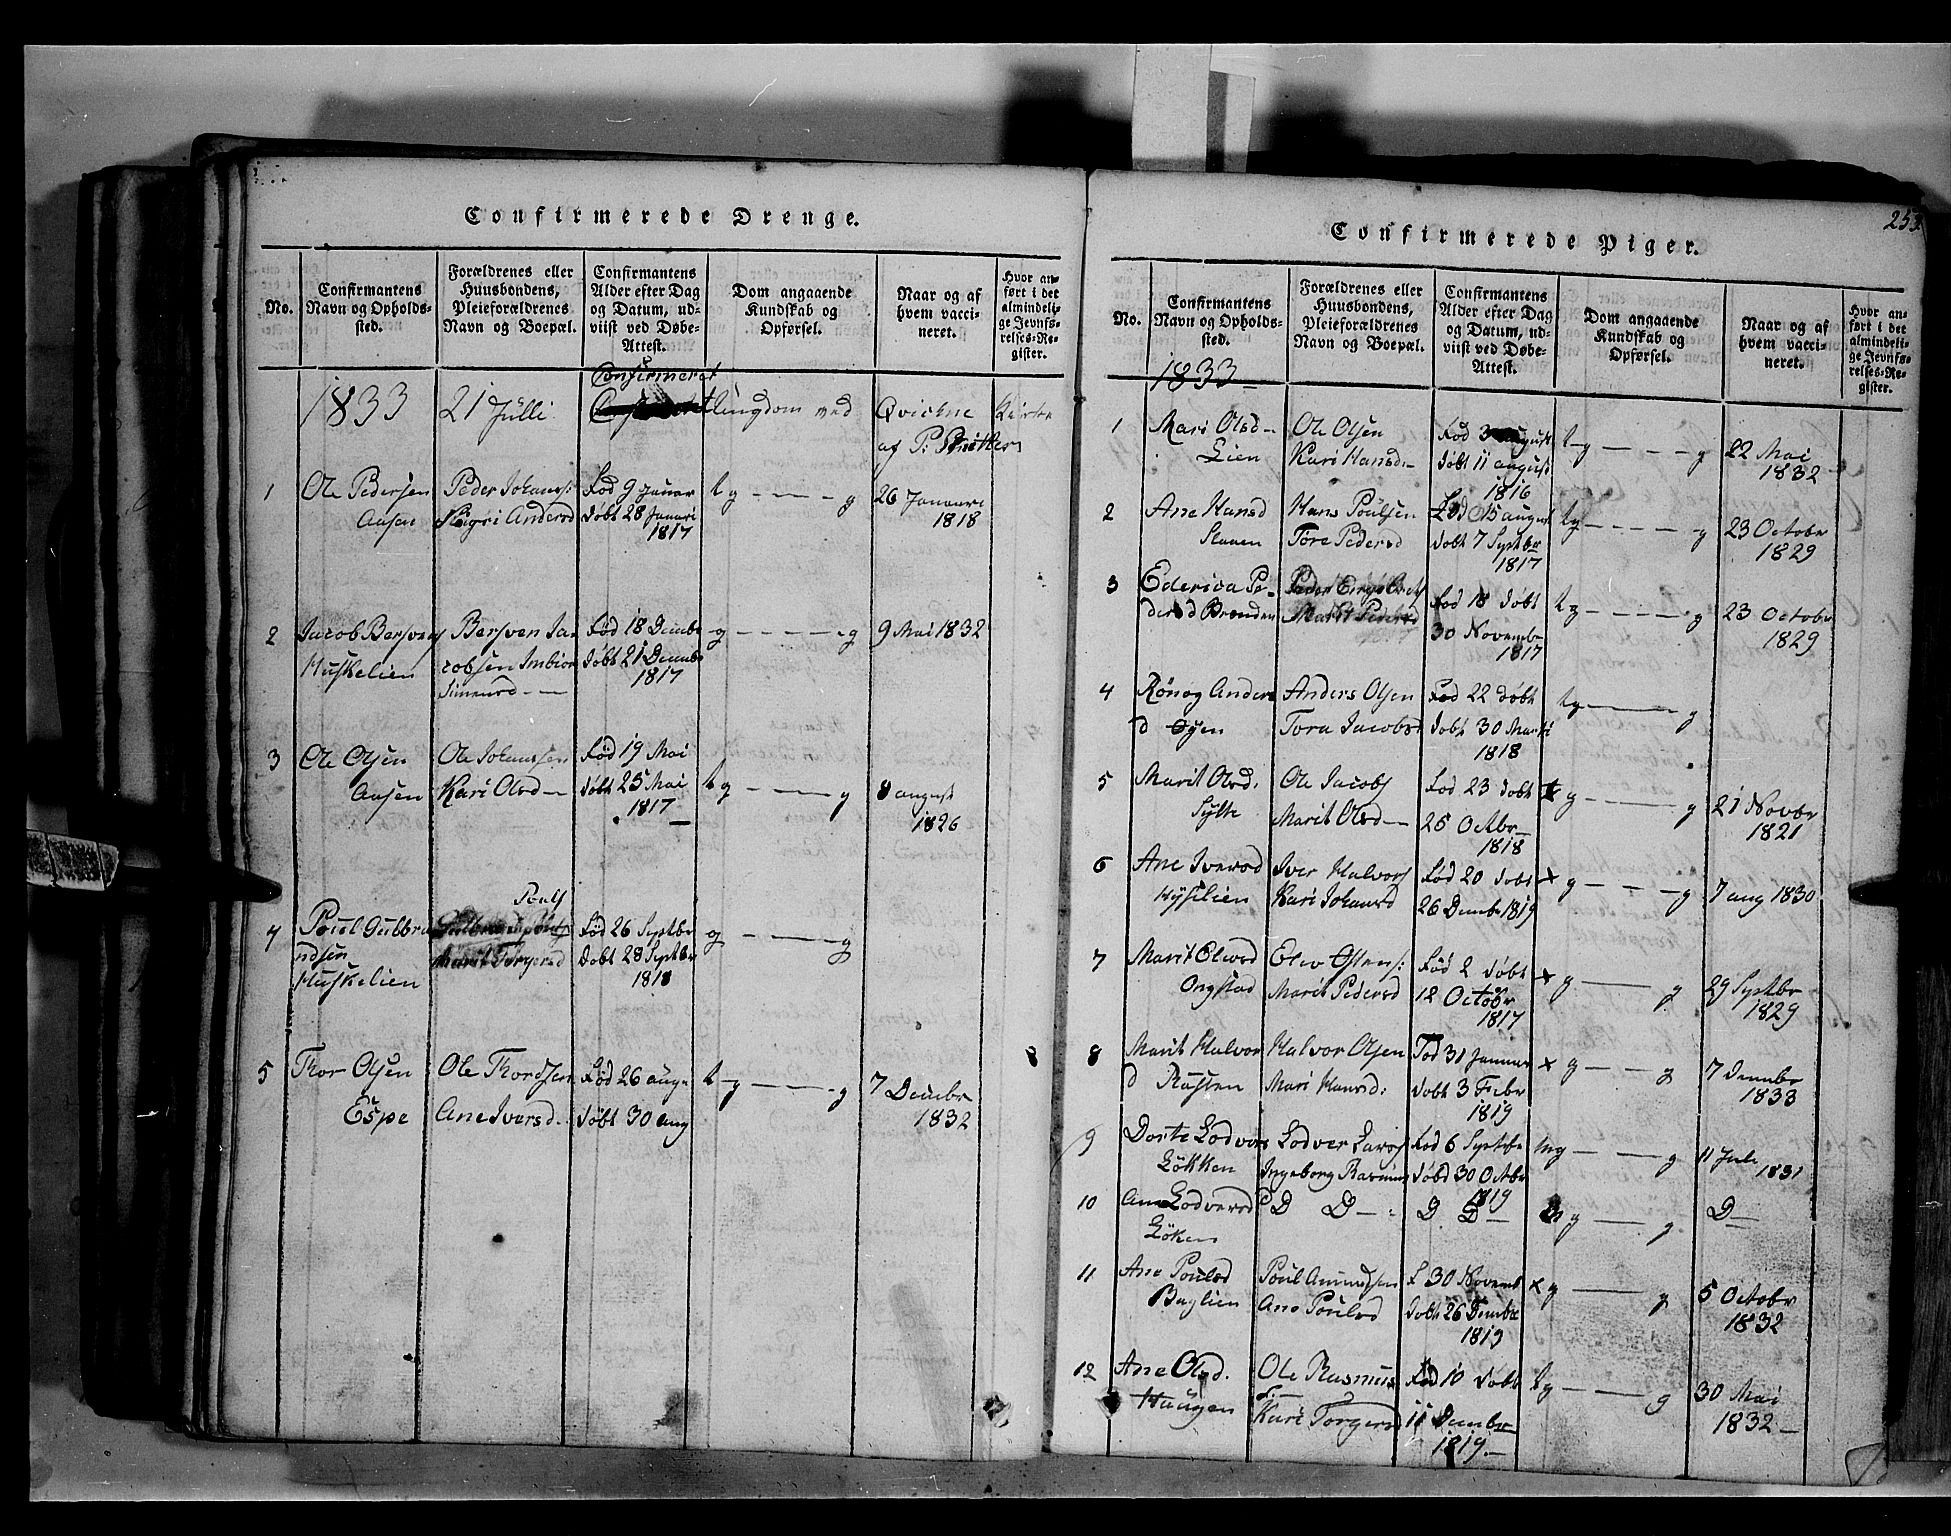 Confirmerede Drenge.
No.
Confirmantens
Navn og Opholds-
sted.
Forældrenes eller
Huusbondens,
Pleieforældrenes
Navn og Boepæl.
Confirmantens
Alder efter Dag
og Datum, ud-
viist ved Døbe-
Attest.
Dom angaaende
Kundskab og
Opførsel.
Naar og af
hvem vacci-
neret.
Hvor an-
ført i det
almindeli-
ge Jevnfø-
relses-Re-
gister.
1833 21 Julli Confirmeret Ungdom ved Qvickne Kirke
af P:
1 Ole Pedersen Peder Johans: Fød 9 Januar t g - - - - g 26 Januari
Aasen Sigri Andersd døbt 28 Januari 1818
1817
2 Jacob Bersvens Bersven Ja- Fød 18 Decembr g - - - - g 9 Mai 1832
Huskelien cobsen Imbior døbt 21 Decembr
Simensd - 1817
3 Ole Olsen Ole Johanssen Fød 19 Mai
Aasen Kari Olsd - døbt 25 Mai t g - - - - g 8 august
1817 1826
Poulf
4 Poul Gulbra Fød 26 Septbr g - - - g
ndsen Marit Torgersd Døbt 28 Septbr
Huskelien 1818
5 Thor Olsen Ole Thordsen Fød 26 augu t - g - - - g 7 Decembr
Espe Ane Iversd. døbt 30 aug 1832
8
253
Confirmerede Piger.
No.
Confirmantens
Navn og Opholds-
sted.
Forældrenes eller
Huusbondens,
Pleieforældrenes
Navn og Boepæl.
Confirmantens
Alder efter Dag
og Datum, ud-
viist ved Døbe-
Attest.
Dom angaaende
Kundskab og
Opførsel.
Naar og af
hvem vacci-
neret.
Hvor an-
ført i det
almindeli-
ge Jevnfø-
relses-Re-
gister.
1833 -
1 Mari Olsd - Ole Olsen Fød 3 august t g - - - g 22 Mai
Lien Kari Hansd - døbt 11 august 1832
1816
2 Ane Hansd Hans Poulsen Fød 15 august t g - - - - g 23 Octobr
Slaaen Tore Pedersd døbt 7 Septbr 1829
1817
3 Ederica Pe- Peder Fød 18 døbt t g - - - - g 23 Octobr
dersd Brenden Marit Pedersd 30 Novembr 1829
1817
4 Rønog Anders Anders Olsen Fød 22 døbt t g - - - g
d Øyen Tora Jacobsd døbt 30 Marti
1818
5 Marit Olsd. Ole Jacobs Fød 23 døbt g - - - - g 21 Novbr
Sylte Marit Olsd - 25 Octbr 1821
1818
6 Ane Iversd Iver Halvors Fød 20 døbt x g - - - g 7 aug 1830
Hysilien Kari Johansd 26 Decmbr 1819
7 Marit Elevsd Elev Estens: Fød 2 døbt x g - - - g 29 Septbr
Ongstad Marit Pedersd 12 Octobr 1829
1817
8 Marit Halvor Halvor Olsen Fød 31 Januar x g - - - g 7 Decmbr
d Rusten Mari Hansd: døbt 3 Febr 1833
1819
9 Dorte Lodvers Lodver Lars Fød 6 Septbr mg - - - g 11 Juli
Løkken Ingeborg Rasmus døbd 30 Octbr 1831
1819
10 Ane Lodversd D D - D D - g - - - g D -
Løken
11 Ane Poulsd Poul Amundsen F 30 Novemb x g - - - g 5 Octobr
Baglien Ane Poulsd døbt 26 Decmbr 1832
1819
12 Ane Olsd. Ole Rasmus Fød 10 døbt t g - - - g 30 Mai
Haugen Kari Torgersd 11 Decmbr 1832 -
1819. -